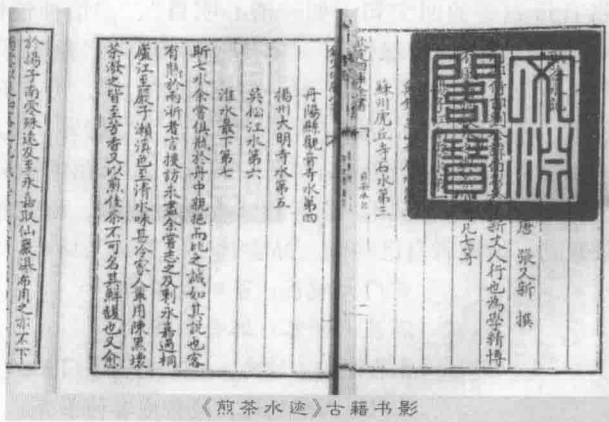 文淵閣寶
唐 張又新 撰
新丈人行也為學精博
凡七等
蘇州虎丘寺石水第三
丹陽縣觀音寺水第四
揚州大明寺水第五
吳松江水第六
淮水最下第七
斯七水余嘗俱瓶於舟中親挹而比之誠如其說也客
有熟於兩浙者言搜訪未盡余嘗志之及刺永嘉過桐
廬江至嚴子瀨溪色至清水味甚冷家人輩用陳黑壞
茶潑之皆至芳香又以煎佳茶不可名其鮮馥也又愈
於揚子南零殊遠及至永嘉取仙巖瀑布用之亦不下
《煎茶水迹》古籍书影